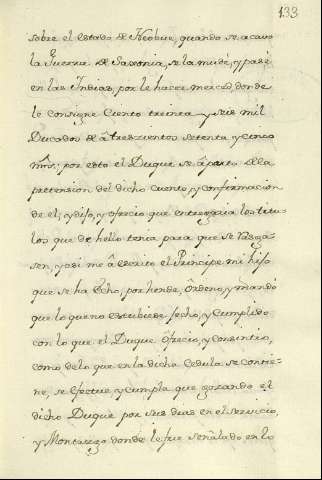 133
sobre el estado de Neoburg, quando se acavo
la Guerra de Saxonia, se la mudè, y pasè
en las Indias, por le hacer merced, donde
le consignè Ciento treinta y seis mil
Ducados de â trescientos setenta y cinco
mrs; por esto el Duque se âpartò della
pretension del dicho cuento, y confirmacion
de el, y dijo, y ofrecio que entregaria los titu-
los que de hello tenia para que se rasga-
sen, y asi me â escrito el Principe mi hijo
que se ha Echo, por hende, ordeno, y mando
que lo que no estubiere fecho, y cumplido
con lo que el Duque ofrecio, y consintio,
como de lo que en la dicha Cedula se contie-
ne, se efectue, y cumpla que gozando el
dicho Duque por sus dias en el servicio,
y Montazgo donde le fue señalado en lo